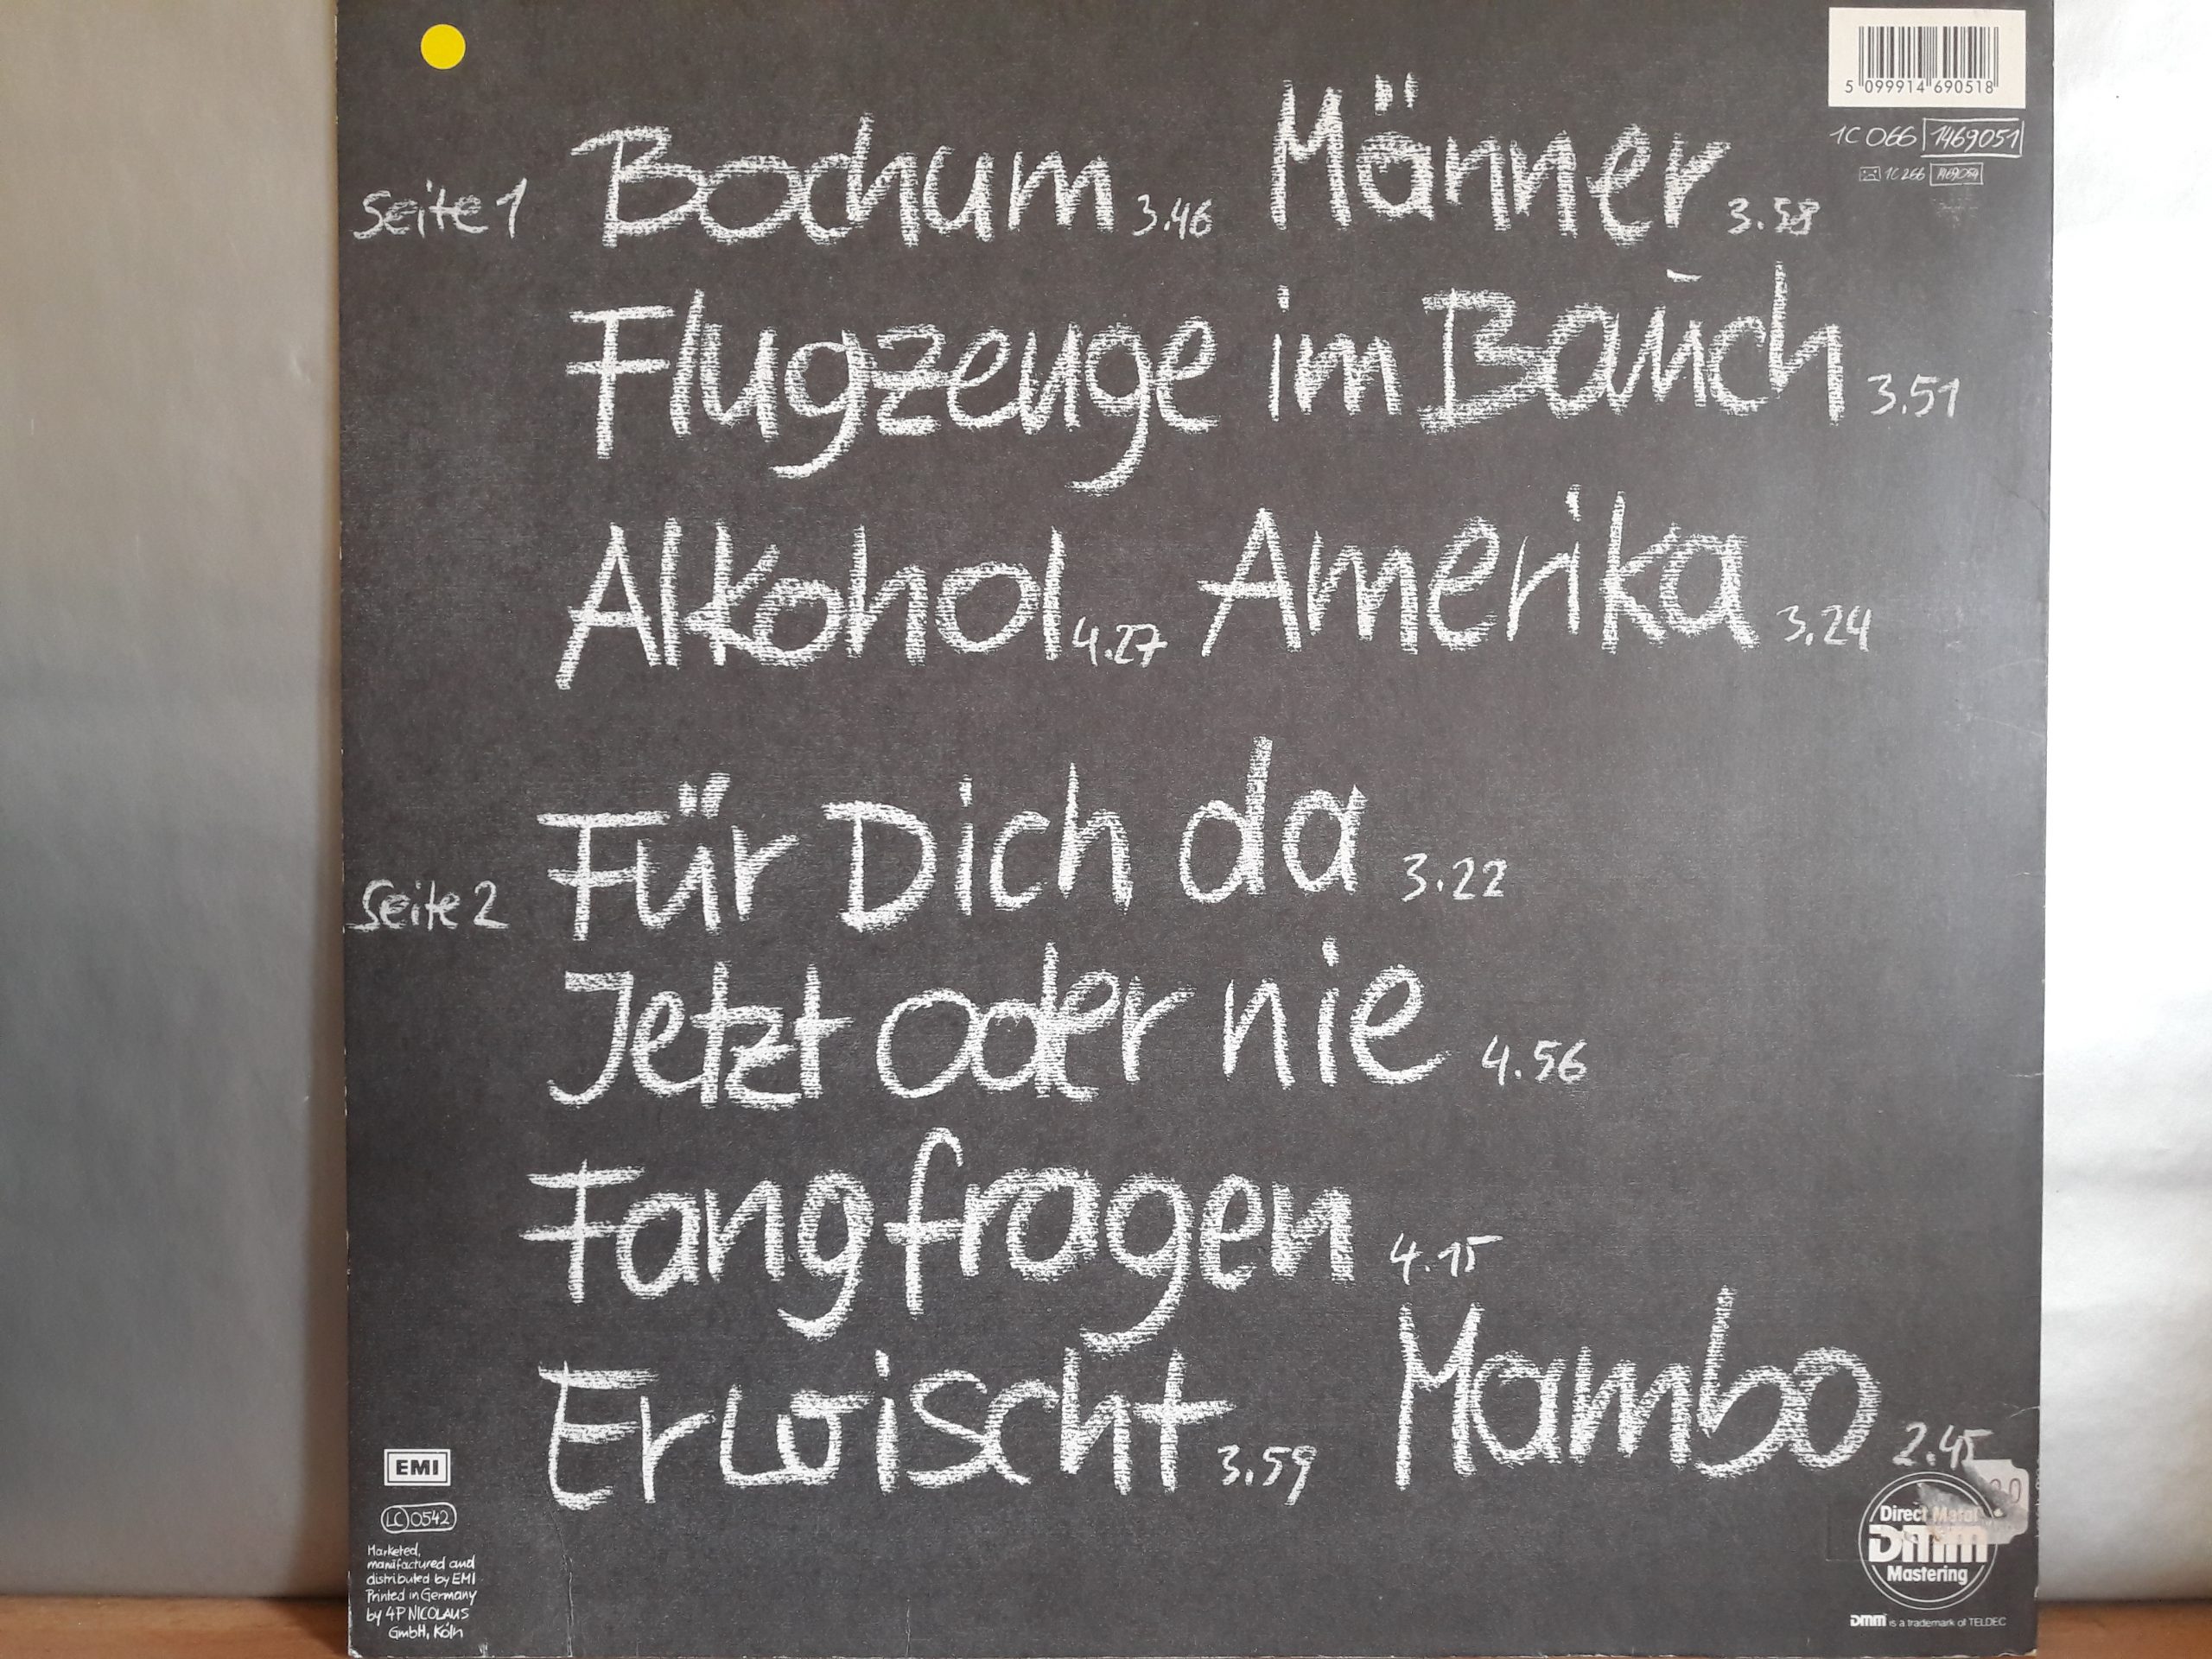 5 099914 690518
1C 066 1469051
1C 266
Seite 1 Bochum 3.46 Männer 3.58
Flugzeuge im Bauch 3.51
Alkohol 4.27 Amerika 3.24
Seite 2 Für Dich da 3.22
Jetzt oder nie 4.56
Fangfragen 4.15
Erwischt 3.59 Mambo 2.45
EMI
LC 0542
Marketed,
manufactured and
distributed by EMI
Printed in Germany
by 4P NICOLAUS
GmbH, Köln
Direct Metal
DMM
Mastering
DMM is a trademark of TELDEC